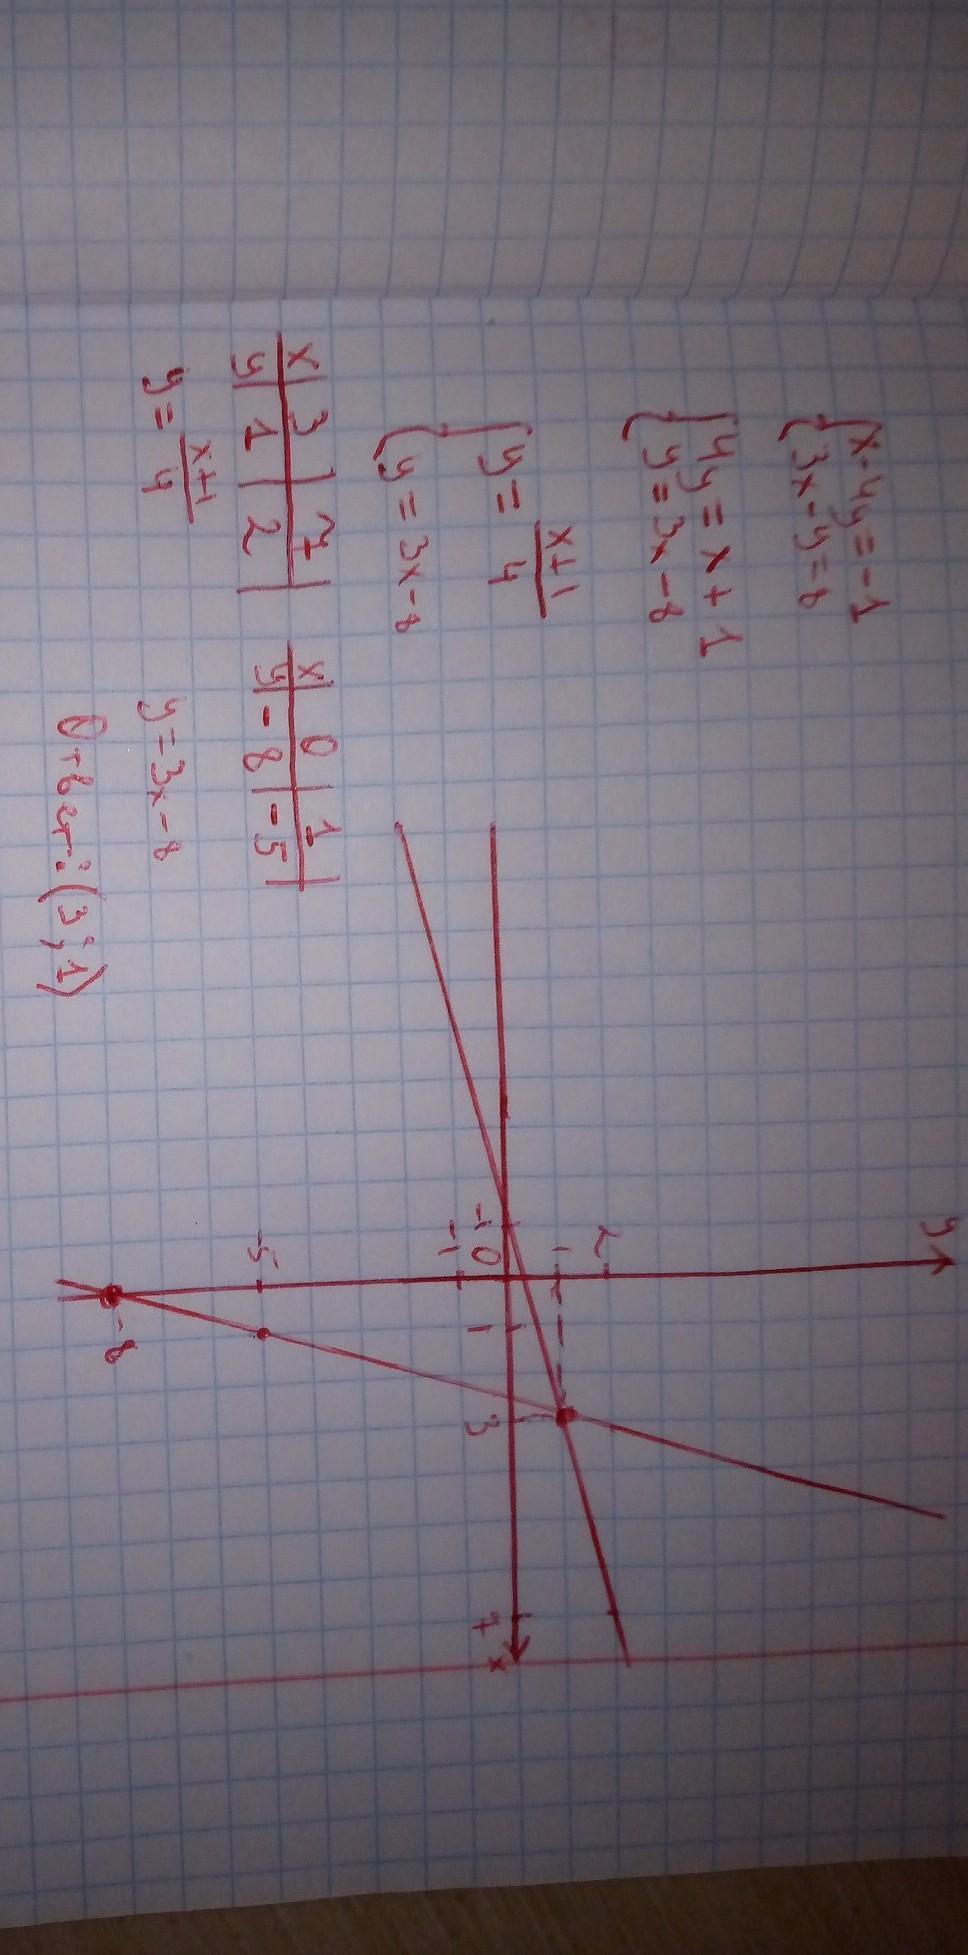 {x-4y=-1
{3x-y=8
{4y=x+1
{y=3x-8
{y=\frac{x+1}{4}
{y=3x-8
x | 3 | 7 |
y | 1 | 2 |
y=\frac{x+1}{4}
x | 0 | 1 |
y | -8 | -5 |
y=3x-8
Ответ: (3; 1)
y
2
1
-1 0 1 3 7 x
-1
-5
-8